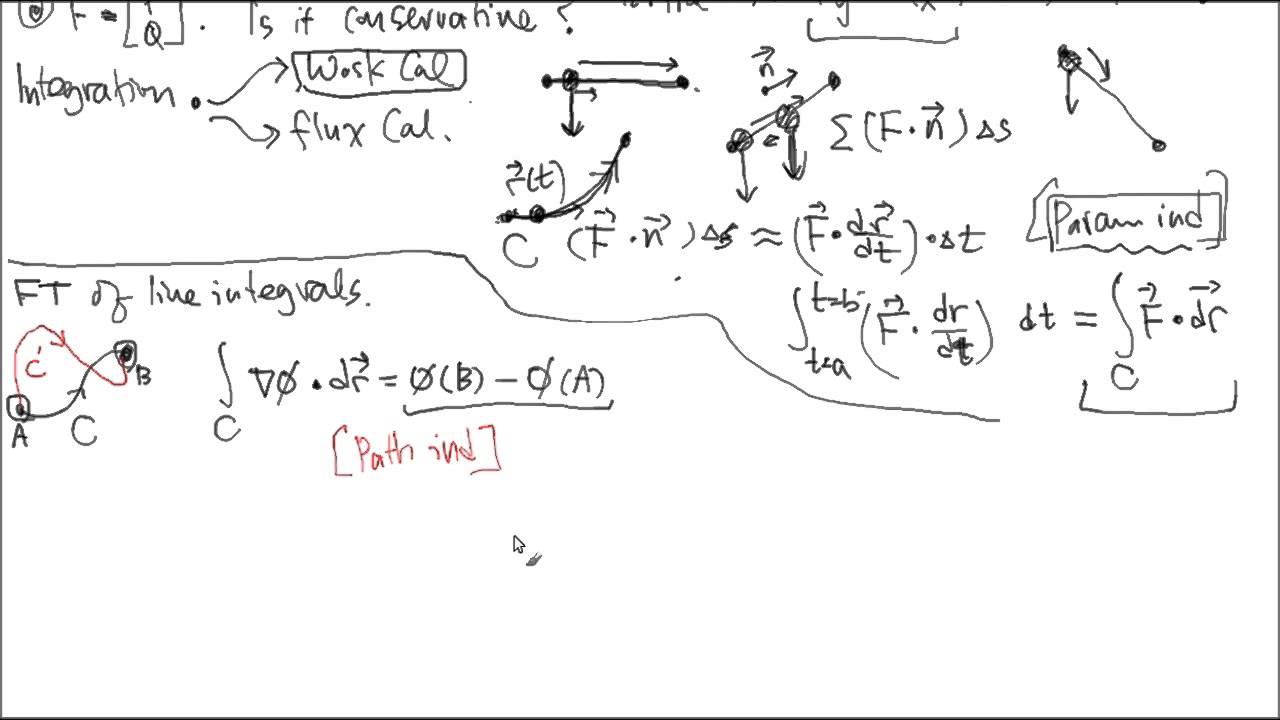 F = [ Q ]. Is it conservative?
Integration
Work Cal
flux Cal.
n⃗
Σ(F·n⃗)Δs
r⃗(t)
C
(F⃗·n⃗)Δs ≈ (F⃗·dr⃗/dt)·Δt
[Param ind]
∫_{t=a}^{t=b} (F⃗·dr/dt) dt = ∫_C F⃗·dr⃗
FT of line integrals.
C'
A
B
C
∫_C ∇ø·dr⃗ = ø(B) − ø(A)
[Path ind]